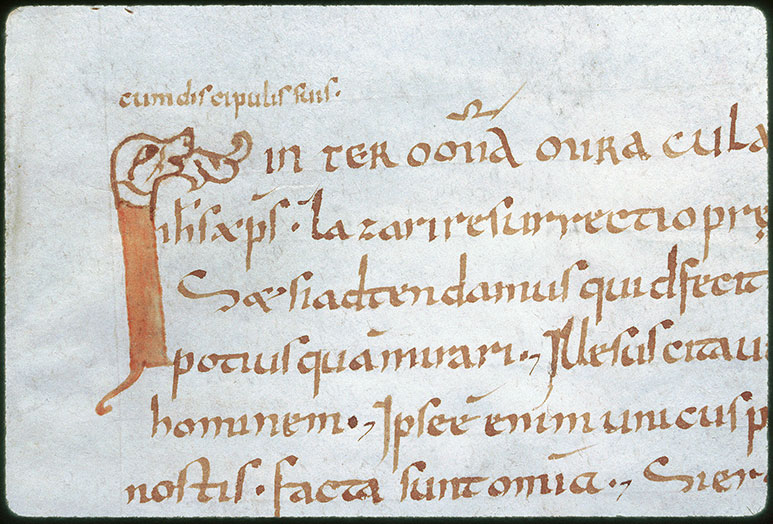 cum discipulis suis.
IN TER OMĪA MIRA CULA
ihs xps. lazari resurrectio prę
Sæ si adtendamus quid fecit
potius quā mirari., Ille suscitau
hominem., Ipse ē enim unicus p
nostis. facta sunt omīa., Si er